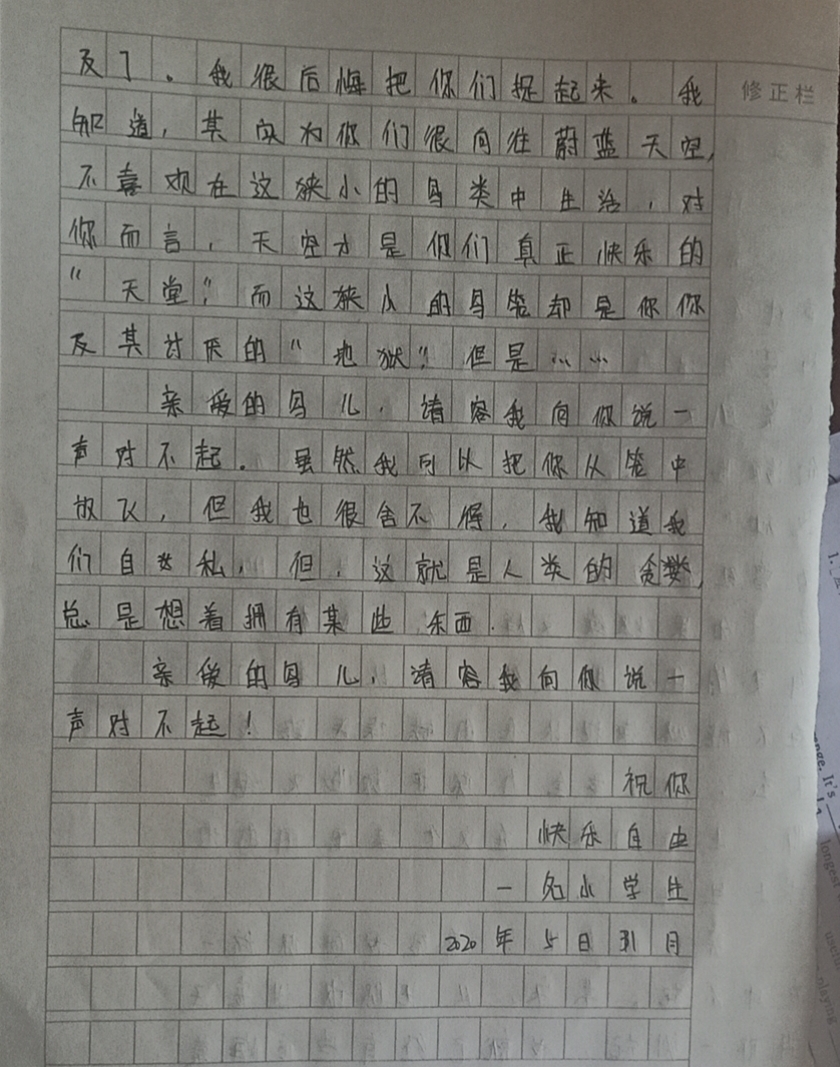 及了。我很后悔把你们捉起来。我
修正栏
知道，其实为你们很向往蔚蓝天空，
不喜欢在这狭小的鸟类中生活，对
你而言，天空才是你们真正快乐的
“天堂”，而这狭小的鸟笼却是你你
及其讨厌的“地狱”！但是……
亲爱的鸟儿，请容我向你说一
声对不起。虽然我可以把你从笼中
放飞，但我也很舍不得，我知道我
们自私，但，这就是人类的贪婪，
总是想着拥有某些东西.
亲爱的鸟儿，请容我向你说一
声对不起！
祝你
快乐自由
一名小学生
2020年5日31月